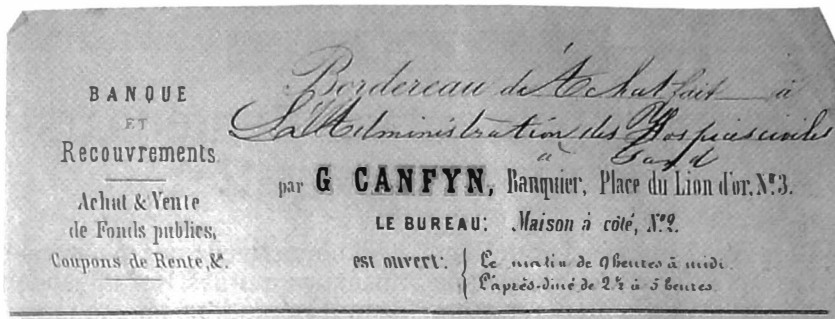 BANQUE
ET
Recouvrements
Achat & Vente
de Fonds publics,
Coupons de Rente, &.
Bordereau d'Achat fait à
L'Administration des Hospices civiles
à Gand
par G CANFYN, Banquier, Place du Lion d'or, Nº 3.
LE BUREAU: Maison à côté, Nº 2.
est ouvert: { Le matin de 9 heures à midi.
L'après-diné de 2½ à 5 heures.